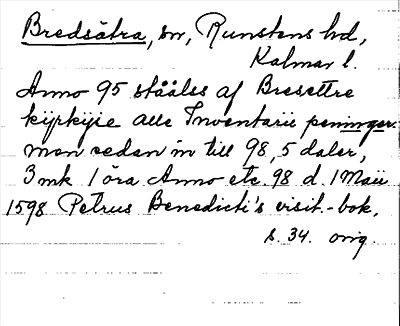 Bredsätra, sn, Runstens hd,
Kalmar l.
Anno 95 stååles af Bresettre
kijrkijie alle Inventarii peninger
men sedan in till 98, 5 daler,
3 mk 1 öra Anno etc. 98 d. 1 Maii
1598 Petrus Benedicti's visit.-bok,
s. 34. orig.